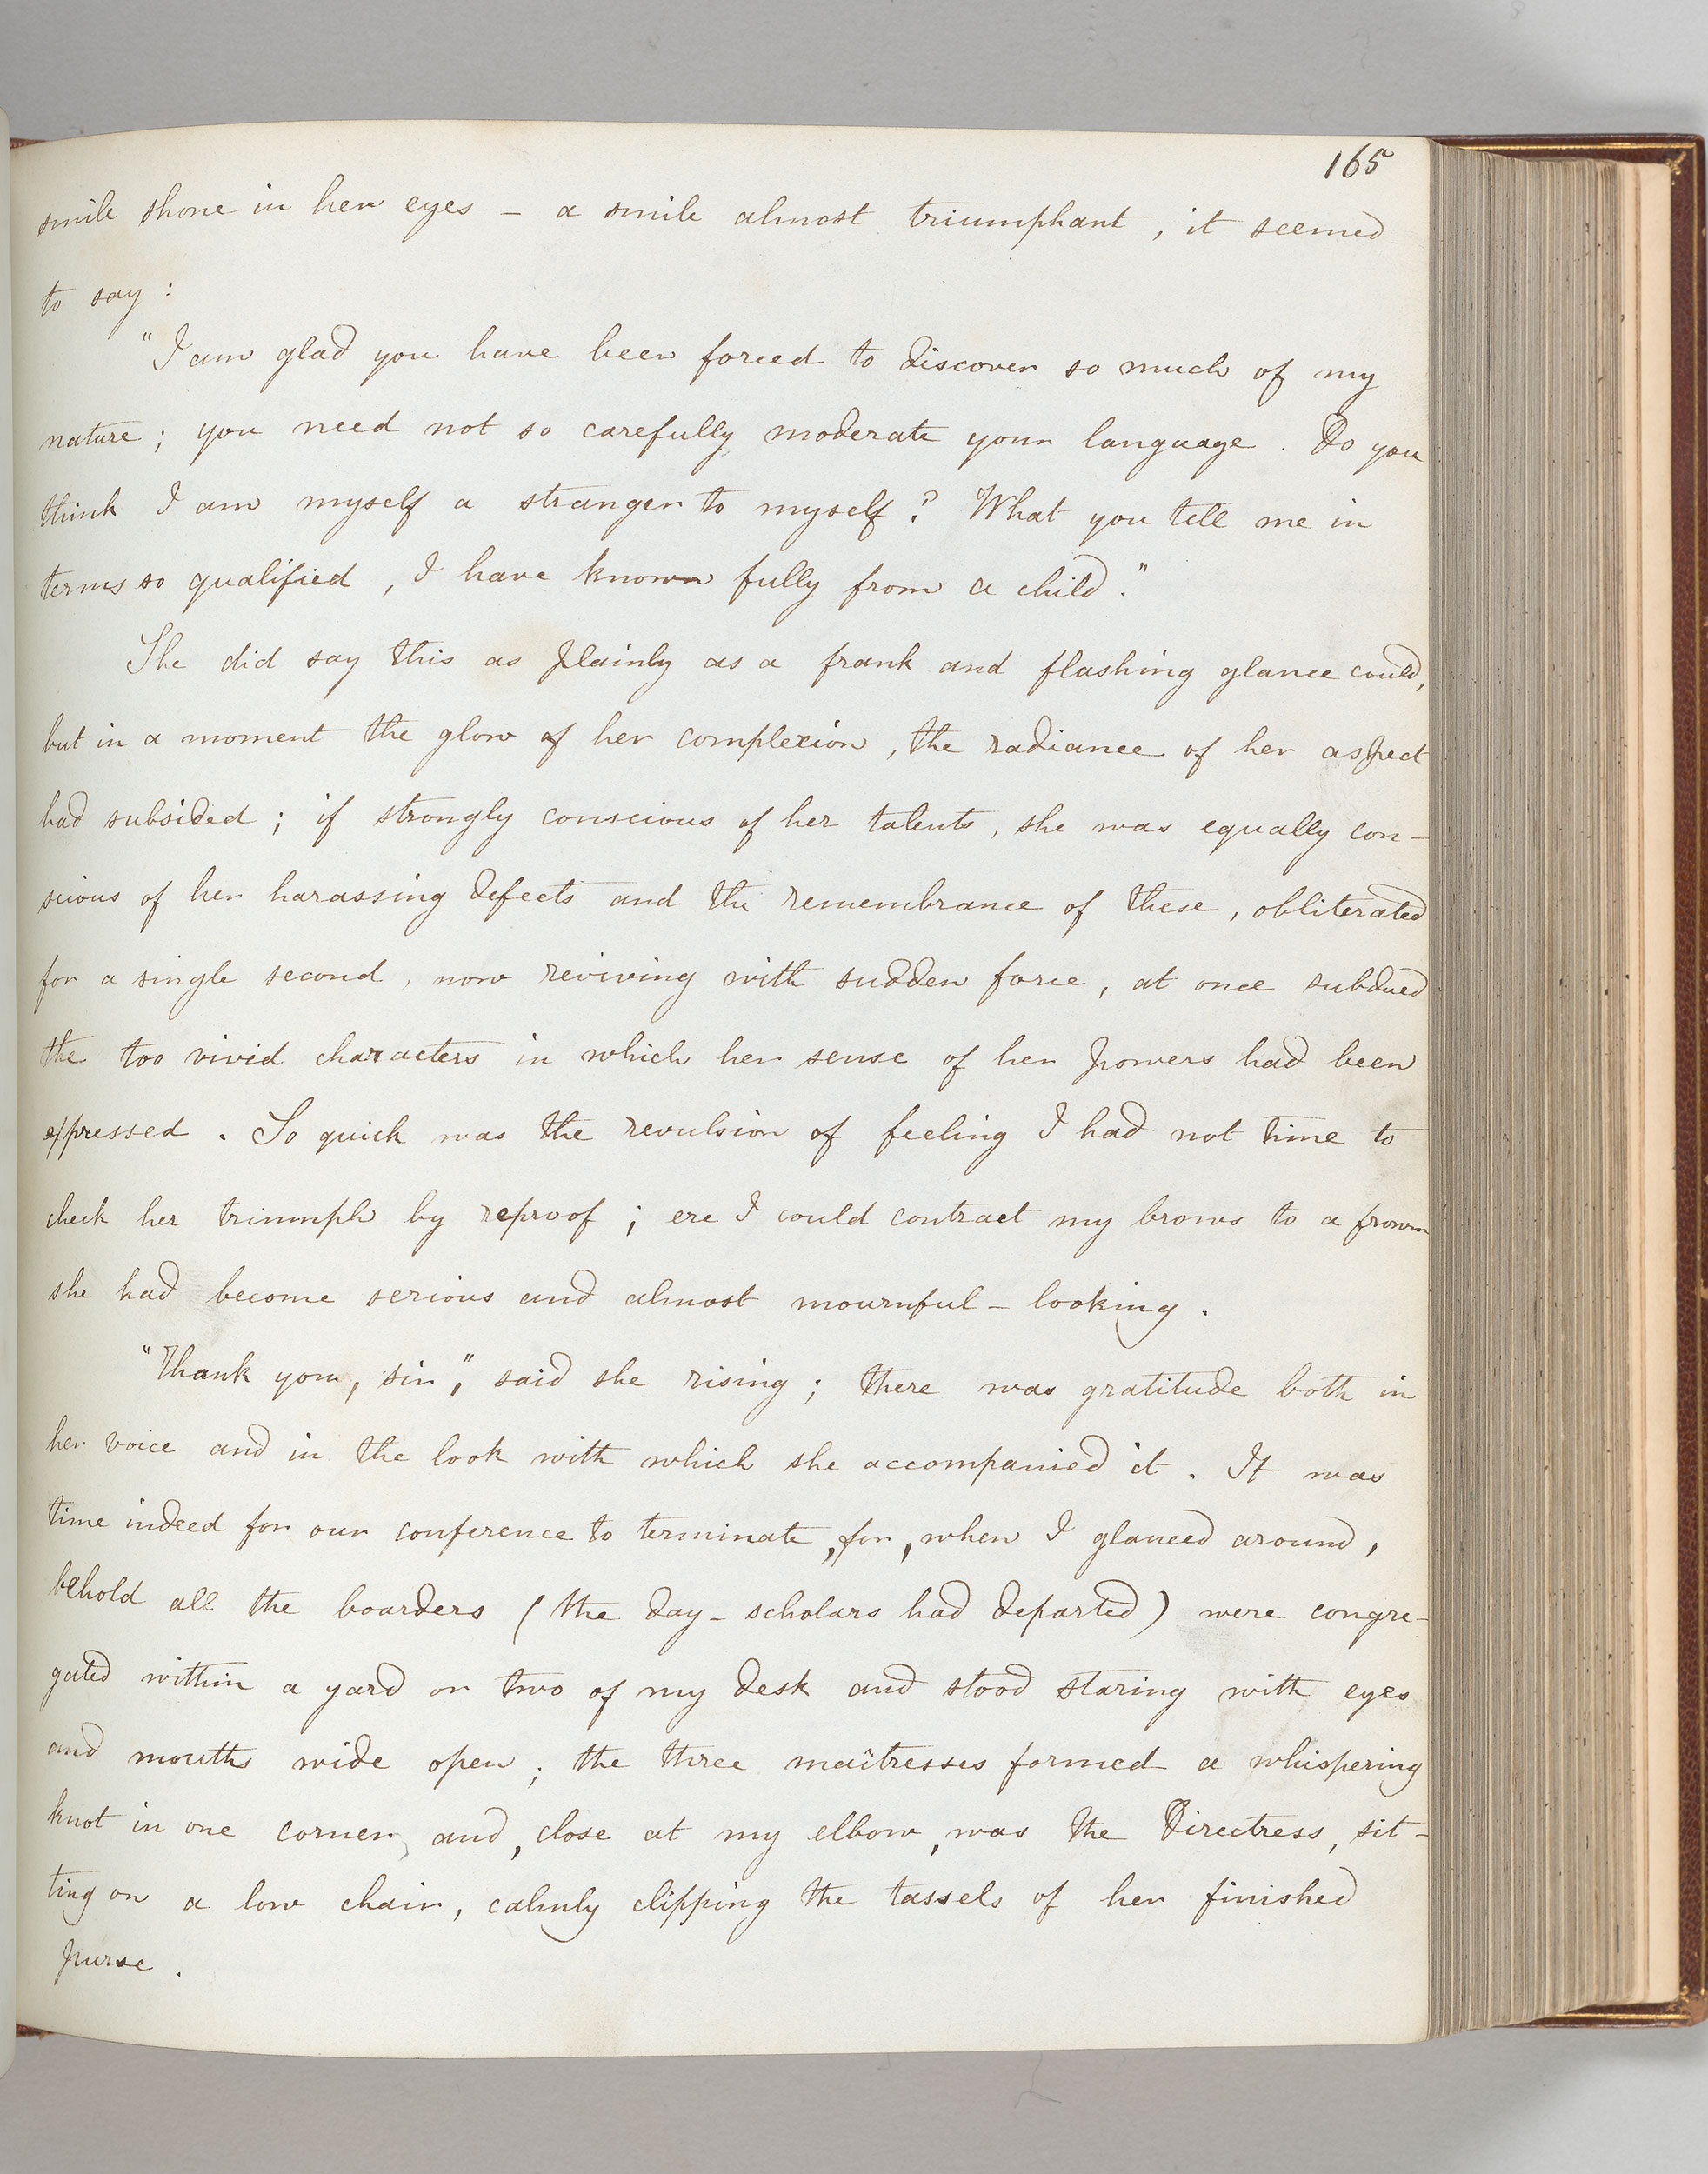 165
smile shone in her eyes – a smile almost triumphant, it seemed
to say:
"I am glad you have been forced to discover so much of my
nature; you need not so carefully moderate your language. Do you
think I am myself a stranger to myself? What you tell me in
terms so qualified, I have known fully from a child."
She did say this as plainly as a frank and flashing glance could,
but in a moment the glow of her complexion, the radiance of her aspect
had subsided; if strongly conscious of her talents, she was equally con-
scious of her harassing defects and the remembrance of these, obliterated
for a single second, now reviving with sudden force, at once subdued
the too vivid characters in which her sense of her powers had been
expressed. So quick was the revulsion of feeling I had not time to
check her triumph by reproof; ere I could contract my brows to a frown
she had become serious and almost mournful-looking.
"Thank you, sir," said she rising; there was gratitude both in
her voice and in the look with which she accompanied it. It was
time indeed for our conference to terminate, for, when I glanced around,
behold all the boarders (the day-scholars had departed) were congre-
gated within a yard or two of my desk and stood staring with eyes
and mouths wide open; the three maîtresses formed a whispering
knot in one corner, and, close at my elbow, was the Directress, sit-
ting on a low chair, calmly clipping the tassels of her finished
purse.